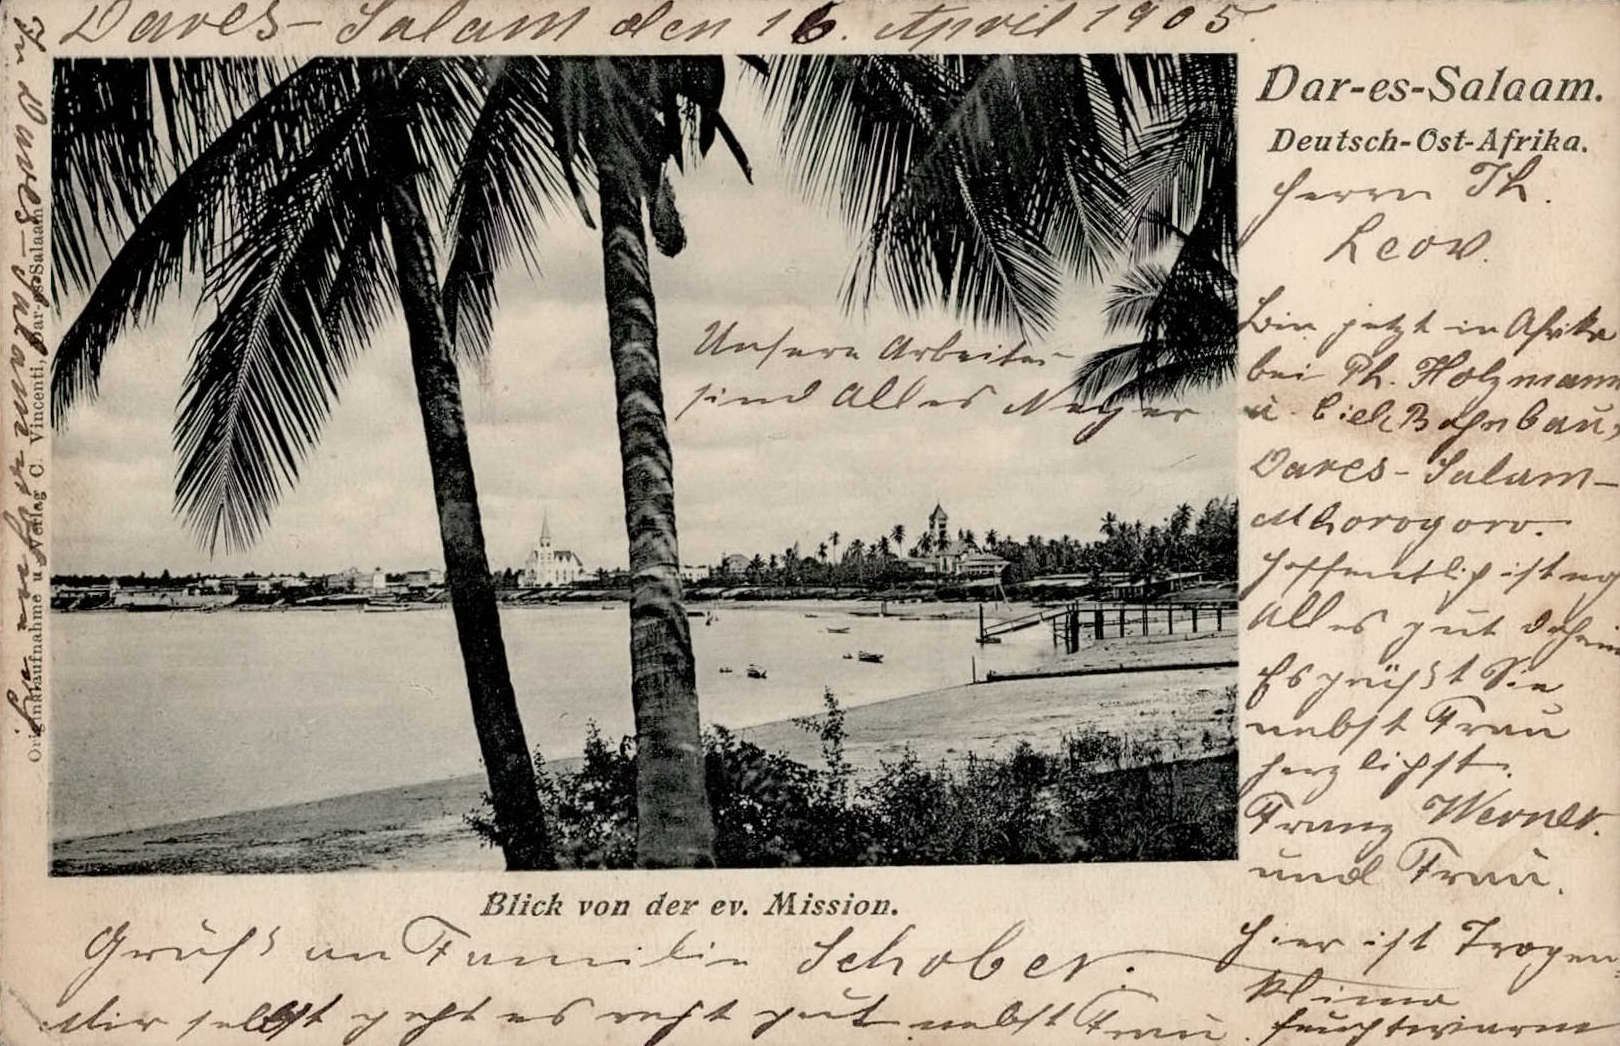 Dares-Salam den 16. April 1905.
Dar-es-Salaam.
Deutsch-Ost-Afrika.
Herrn Th.
Leow.
Bin jetzt in Afrika
bei Ph. Holzmann
u. Bahnbau,
Dares-Salam-
Mhorogoro.
Hoffentlich ist noch
Alles gut daheim
Es grüßt Sie
nebst Frau
herzlichst.
Franz Werner.
und Frau.
Hier ist Tropen
Klima
feuchtwarm
Unsere Arbeiter
sind Alles Neger
Blick von der ev. Mission.
Gruß an Familie Schober.
Mir selbst geht es recht gut nebst Frau.
In Dares-Salam
Originalaufnahme u. Verlag C. Vincenti, Dar-es-Salaam